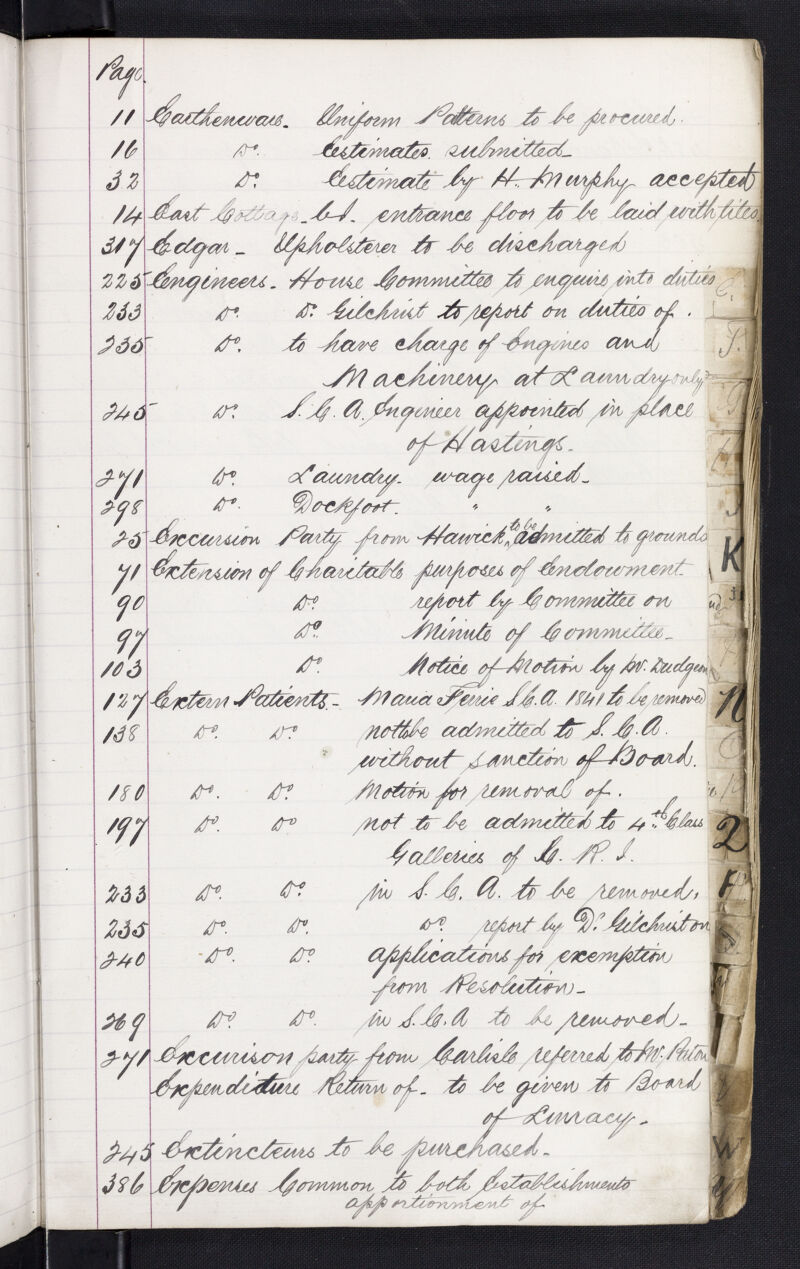 Page.
11 Earthenware. Uniform Patterns to be procured.
16 Do. Estimates submitted
32 Do. Estimate by H. Murphy accepted
14 East Cottage. C.I. entrance floor to be laid with tiles.
317 Edgar - Upholsterer to be discharged
225 Engineers. House Committee to enquire into duties
233 Do. Dr. Gilchrist to report on duties of.
235 Do. to have charge of Engines and
Machinery at Laundry only
245 Do. S.C.A. Engineer appointed in place
of Hastings.
271 Do. Laundry. wage raised.
298 Do. Dockfoot. " "
25 Excursion Party from Hawick to be admitted to grounds
71 Extension of Charitable purposes of Endowment
90 Do. report by Committee on
97 Do. Minute of Committee
103 Do. Notice of Motion by Mr. Dudgeon
127 Extern Patients. Maria Ferrie S.C.A. 1841 to be removed
138 Do. Do. not to be admitted to S.C.A.
without sanction of Board.
180 Do. Do. Motion for removal of.
197 Do. Do not to be admitted to 4th. Class
Galleries of C. R. I.
233 Do. Do. in S. C. A. to be removed.
235 Do. Do. Do. report by Dr. Gilchrist on
240 Do. Do. applications for exemption
from Resolution.
269 Do. Do. in S.C.A to be removed.
271 Excurison party from Carlisle referred to Mr.
Expenditure Return of. to be given to Board
of Lunacy.
245 Extincteurs to be purchased.
386 Expenses Common to both Establishments
apportionment of
K
N
W